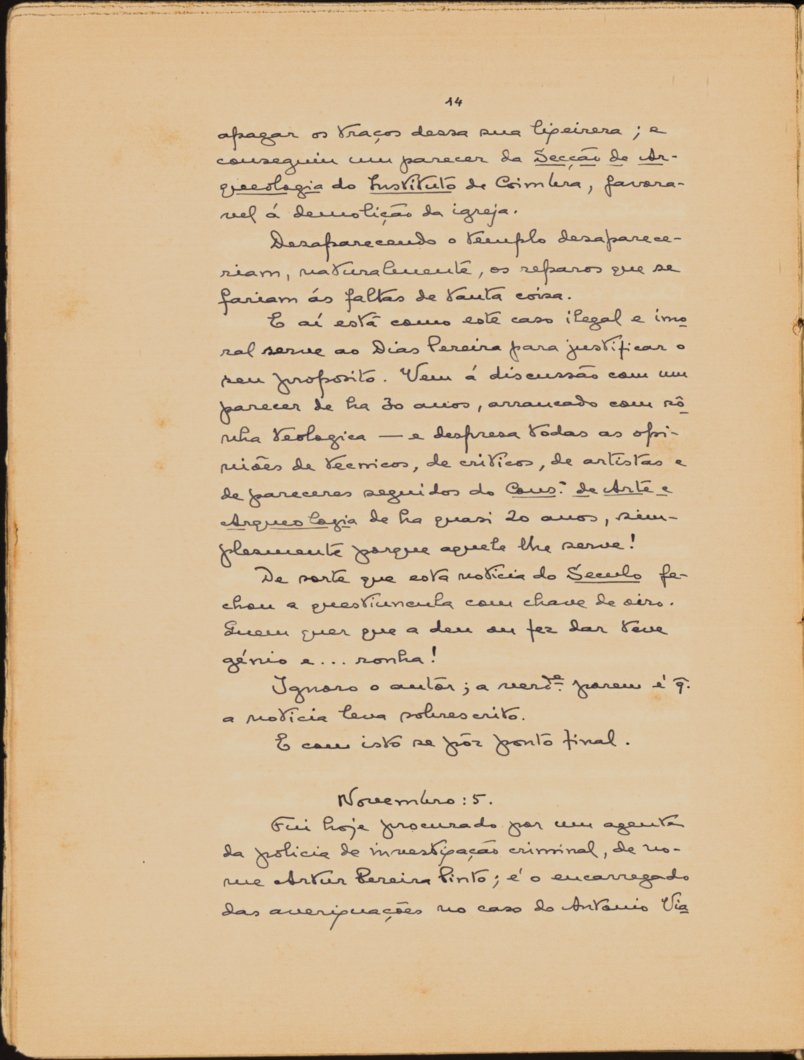 14
apagar os traços dessa sua lixeirera; e
conseguiu um parecer da Secção de Ar-
queologia do Instituto de Coimbra, favora-
vel á demolição da igreja.
Desaparecendo o templo desaparece-
riam, naturalmente, os reparos que se
fariam ás faltas de tanta coisa.
E aí está como este caso ilegal e imo-
ral serve ao Dias Pereira para justificar o
seu proposito. Vem á discussão com um
parecer de ha 30 anos, arrancado com rô-
nha teologica — e despresa todas as opi-
niões de tecnicos, de criticos, de artistas e
de pareceres seguidos do Cons.º de Arte e
Arqueologia de ha quasi 20 anos, sim-
plesmente porque aquele lhe serve!
De sorte que esta noticia do Século fe-
chou a questiuncula com chave de oiro.
Quem quer que a deu ou fez dar teve
génio e... ronha!
Ignoro o autôr; a verd.e porem é q.
a noticia leva sobrescrito.
E com isto se pôz ponto final.
Novembro: 5.
Fui hoje procurado por um agente
da policia de investigação criminal, de no-
me Artur Pereira Pinto; é o encarregado
das averiguações no caso do Antonio Via-